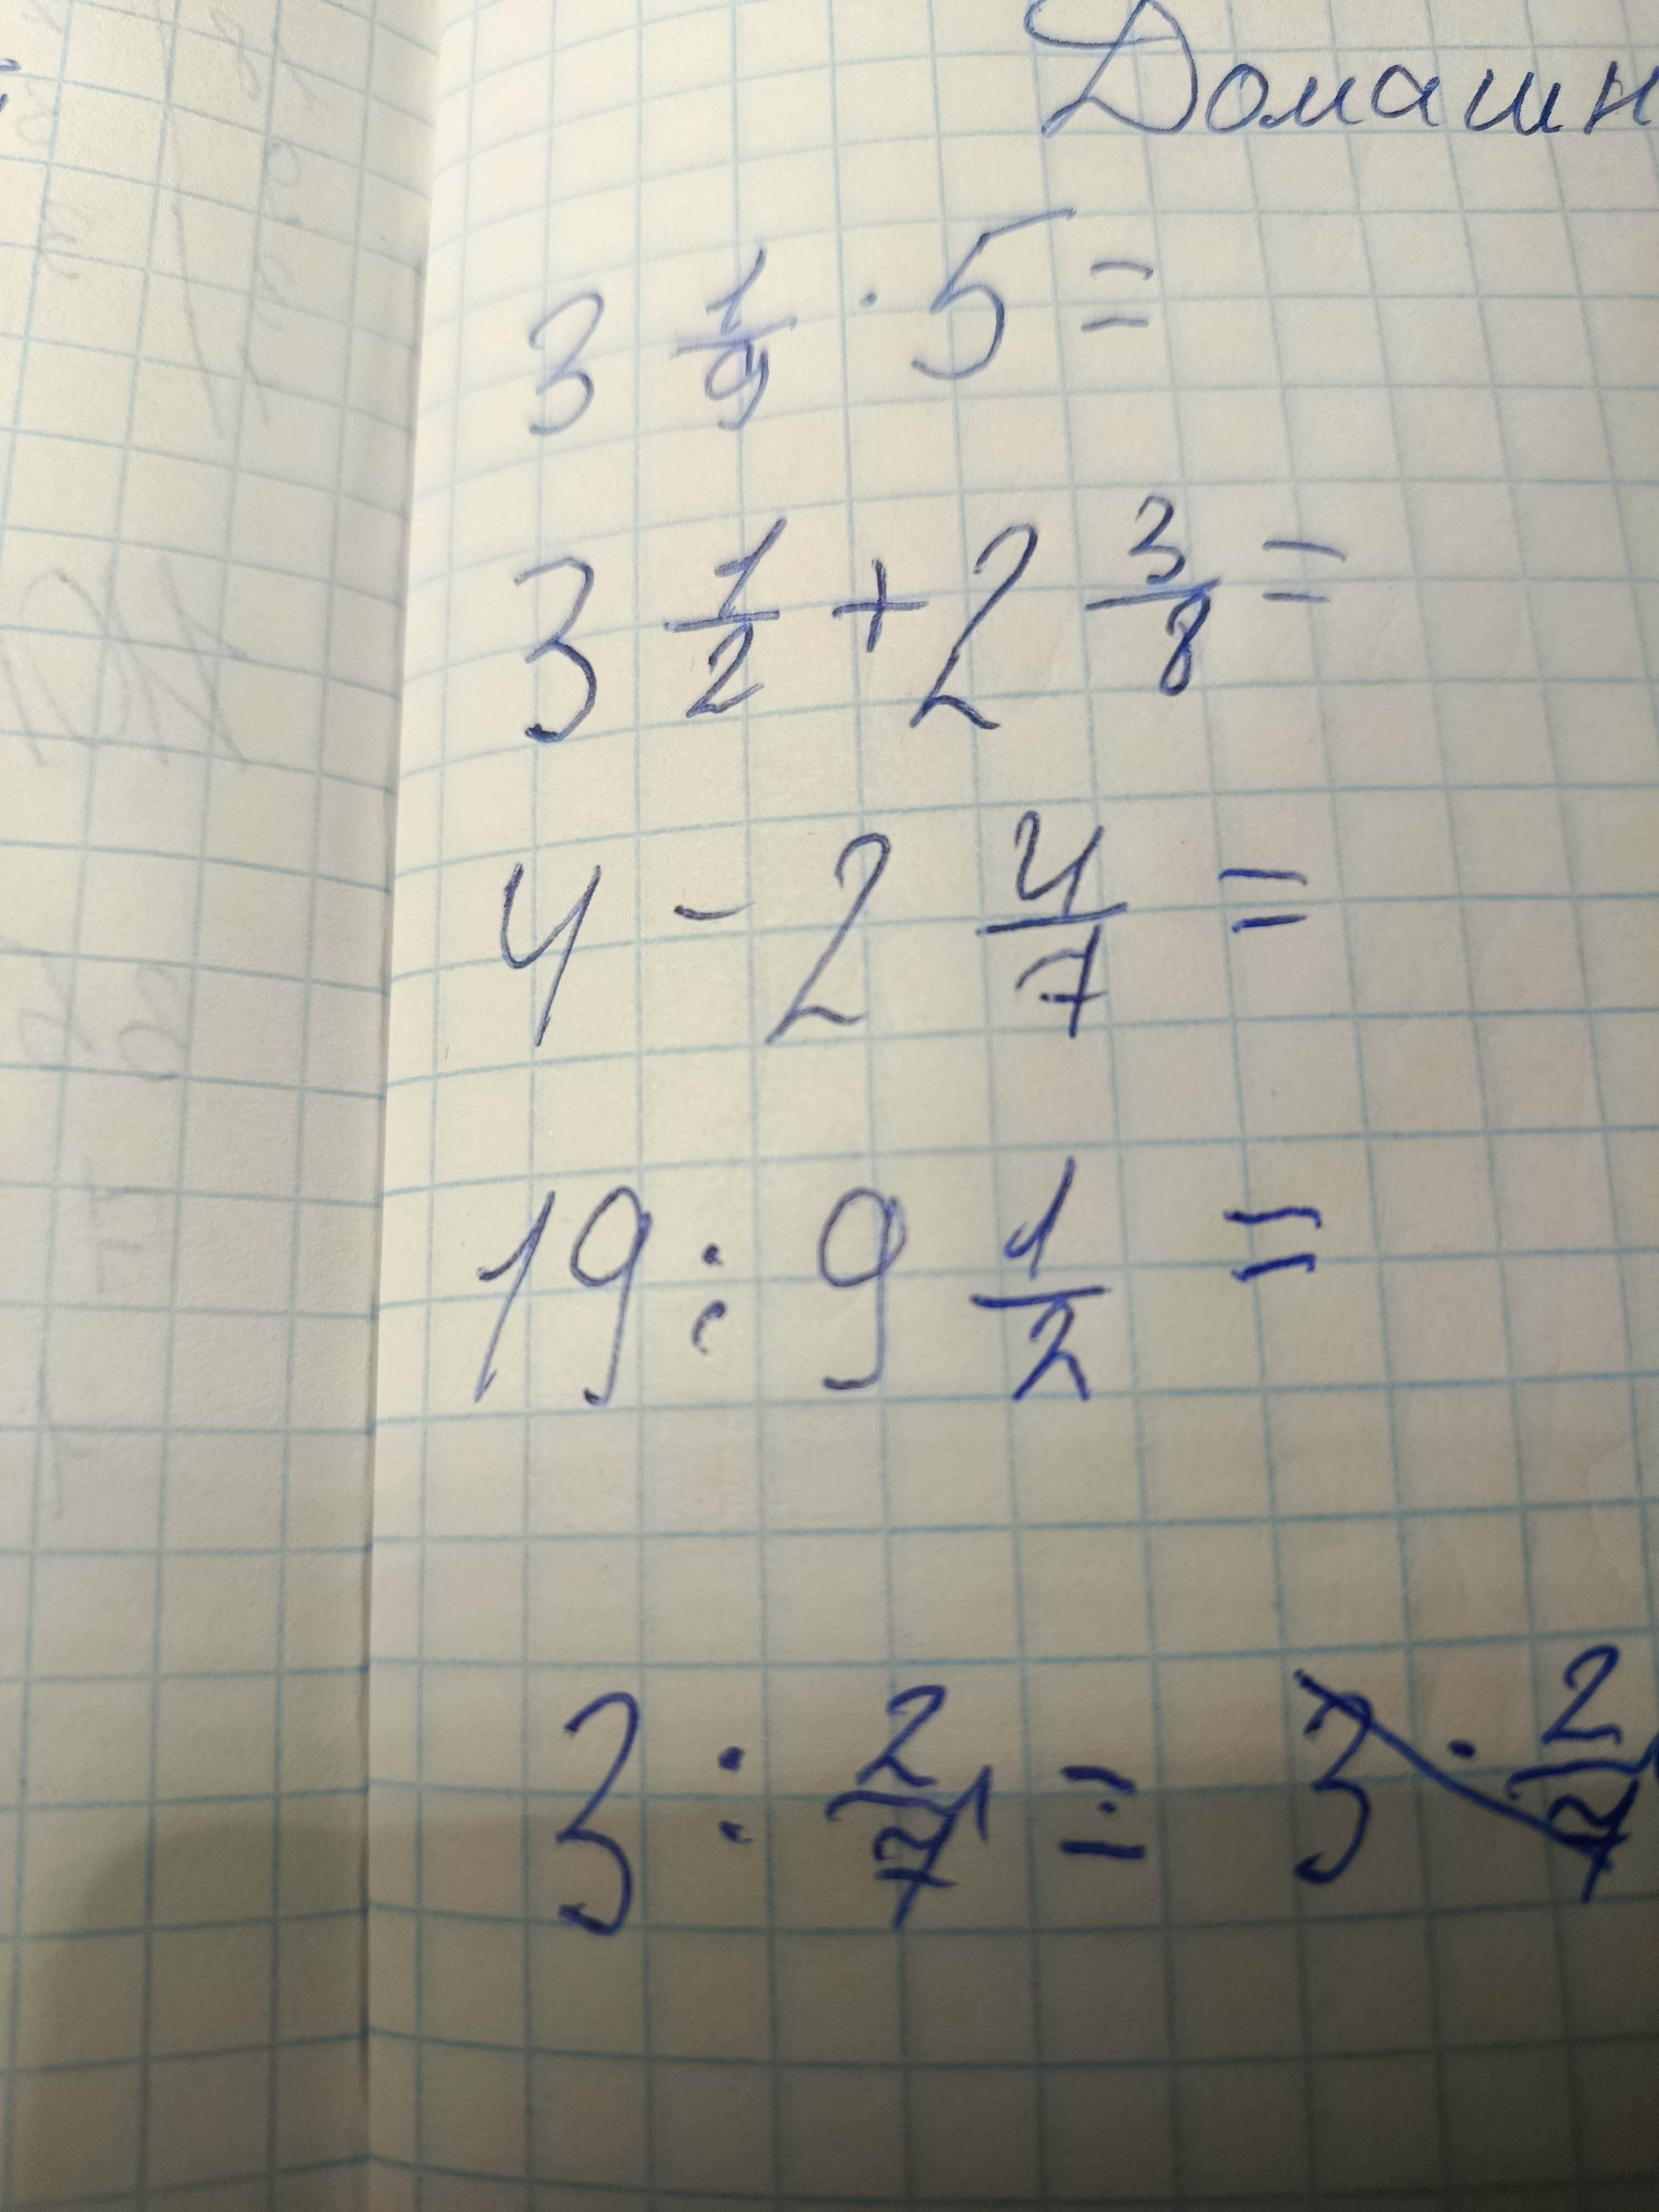 Домашн
3 1/9 · 5 =
3 1/2 + 2 3/8 =
4 - 2 4/7 =
19 : 9 1/2 =
3 : 2/7 = 3 · 2/7